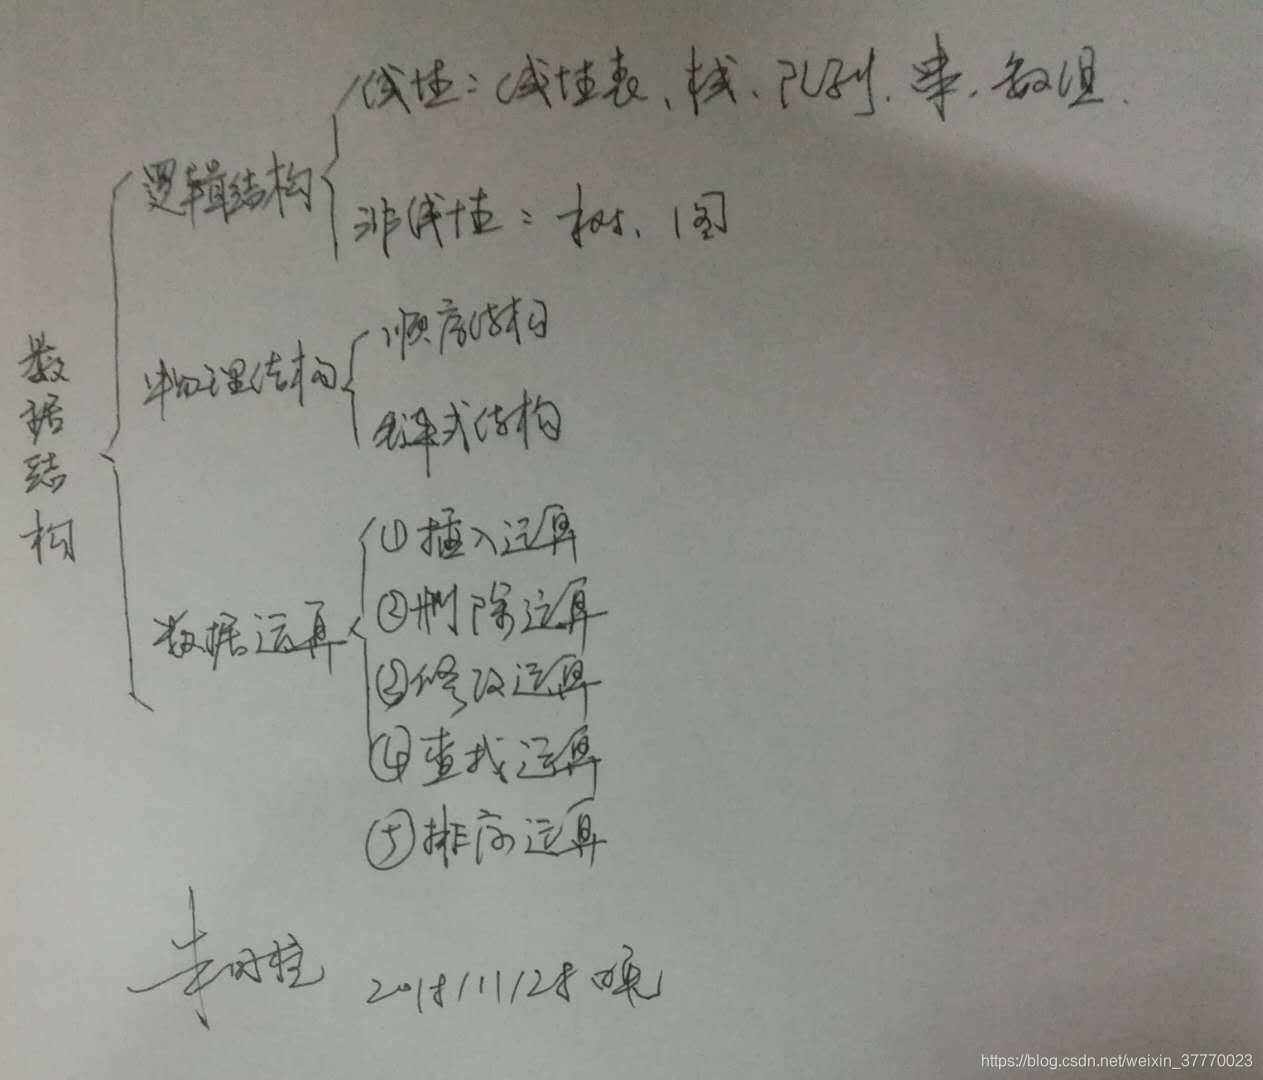 数据结构
逻辑结构
线性：线性表、栈、队列、串、数组.
非线性：树、图
物理结构
顺序结构
链式结构
数据运算
①插入运算
②删除运算
③修改运算
④查找运算
⑤排序运算
朱时柱
2018/11/28 晚
https://blog.csdn.net/weixin_37770023